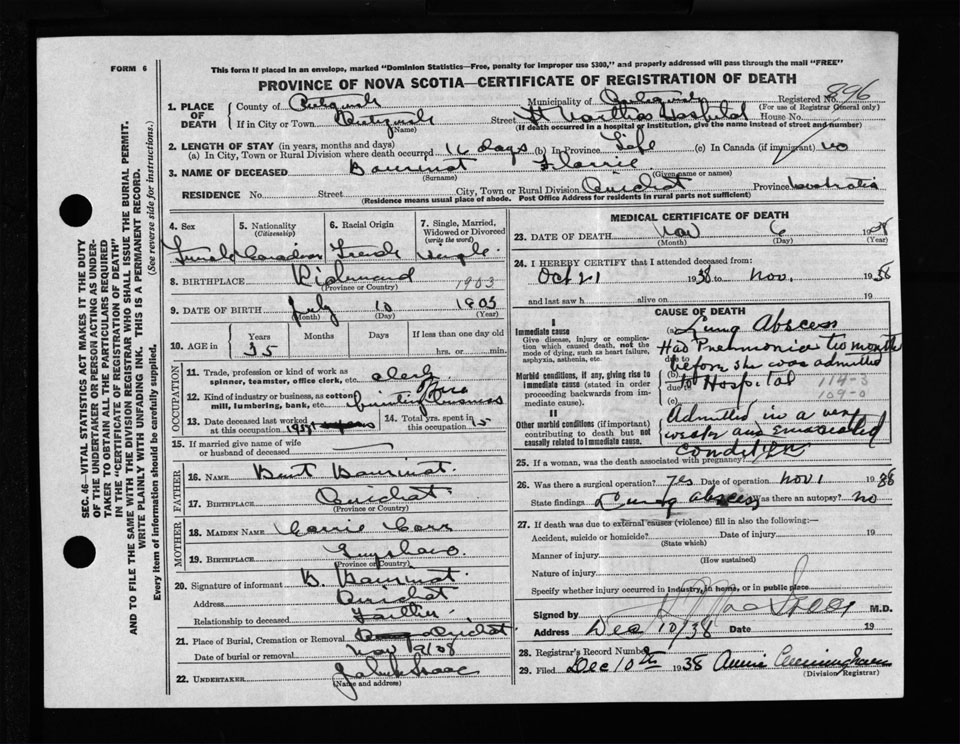 FORM 6
This form if placed in an envelope, marked "Dominion Statistics—Free, penalty for improper use $300," and properly addressed will pass through the mail "FREE"
PROVINCE OF NOVA SCOTIA—CERTIFICATE OF REGISTRATION OF DEATH
Registered No. 896
(For use of Registrar General only)
1. PLACE OF DEATH
County of
Municipality of
If in City or Town
(Name)
Street St Marthas Hospital House No.
(If death occurred in a hospital or institution, give the name instead of street and number)
2. LENGTH OF STAY (in years, months and days)
(a) In City, Town or Rural Division where death occurred 16 days (b) In Province Life (c) In Canada (if immigrant) no
3. NAME OF DECEASED
(Surname)
(Given name or names)
RESIDENCE No. Street City, Town or Rural Division Arichat Province Nova Scotia
(Residence means usual place of abode. Post Office Address for residents in rural parts not sufficient)
4. Sex
Female
5. Nationality
(Citizenship)
Canadian
6. Racial Origin
French
7. Single, Married, Widowed or Divorced
(write the word)
Single
8. BIRTHPLACE Richmond
(Province or Country)
1903
9. DATE OF BIRTH July 10 1903
(Month) (Day) (Year)
10. AGE in
Years Months Days If less than one day old
35 hrs. or min.
OCCUPATION
11. Trade, profession or kind of work as spinner, teamster, office clerk, etc. clerk
12. Kind of industry or business, as cotton mill, lumbering, bank, etc. business
13. Date deceased last worked at this occupation
14. Total yrs. spent in this occupation 15
15. If married give name of wife or husband of deceased
FATHER
16. NAME
17. BIRTHPLACE Arichat
(Province or Country)
MOTHER
18. MAIDEN NAME Carrie
19. BIRTHPLACE Guysboro
(Province or Country)
20. Signature of informant
Address Arichat
Relationship to deceased Father
21. Place of Burial, Cremation or Removal Arichat
Date of burial or removal Nov 9/38
22. UNDERTAKER
(Name and address)
MEDICAL CERTIFICATE OF DEATH
23. DATE OF DEATH Nov 6 1938
(Month) (Day) (Year)
24. I HEREBY CERTIFY that I attended deceased from:
Oct 21 1938 to Nov. 1938
and last saw h alive on 19
CAUSE OF DEATH
I
Immediate cause
Give disease, injury or complication which caused death, not the mode of dying, such as heart failure, asphyxia, asthenia, etc.
Morbid conditions, if any, giving rise to immediate cause (stated in order proceeding backwards from immediate cause).
II
Other morbid conditions (if important) contributing to death but not causally related to immediate cause.
(a) Lung Abscess
Had Pneumonia two months
due to
before she was admitted
(b)
due to
to Hospital
114-3
(c)
109-0
Admitted in a very
weak and emaciated
condition
25. If a woman, was the death associated with pregnancy?
26. Was there a surgical operation? yes Date of operation Nov 1 1938
State findings Lung abscess Was there an autopsy? no
27. If death was due to external causes (violence) fill in also the following:—
Accident, suicide or homicide? Date of injury 19
(State which)
Manner of injury
(How sustained)
Nature of injury
Specify whether injury occurred in industry, in home, or in public place
Signed by M.D.
Address Dec 10/38 Date 19
28. Registrar's Record Number
29. Filed Dec 10th 1938 Annie Cunningham
(Division Registrar)
SEC. 46—VITAL STATISTICS ACT MAKES IT THE DUTY OF THE UNDERTAKER OR PERSON ACTING AS UNDERTAKER TO OBTAIN ALL THE PARTICULARS REQUIRED IN THE "CERTIFICATE OF REGISTRATION OF DEATH" AND TO FILE THE SAME WITH THE DIVISION REGISTRAR WHO SHALL ISSUE THE BURIAL PERMIT.
WRITE PLAINLY WITH UNFADING INK. THIS IS A PERMANENT RECORD.
Every item of information should be carefully supplied. (See reverse side for instructions.)